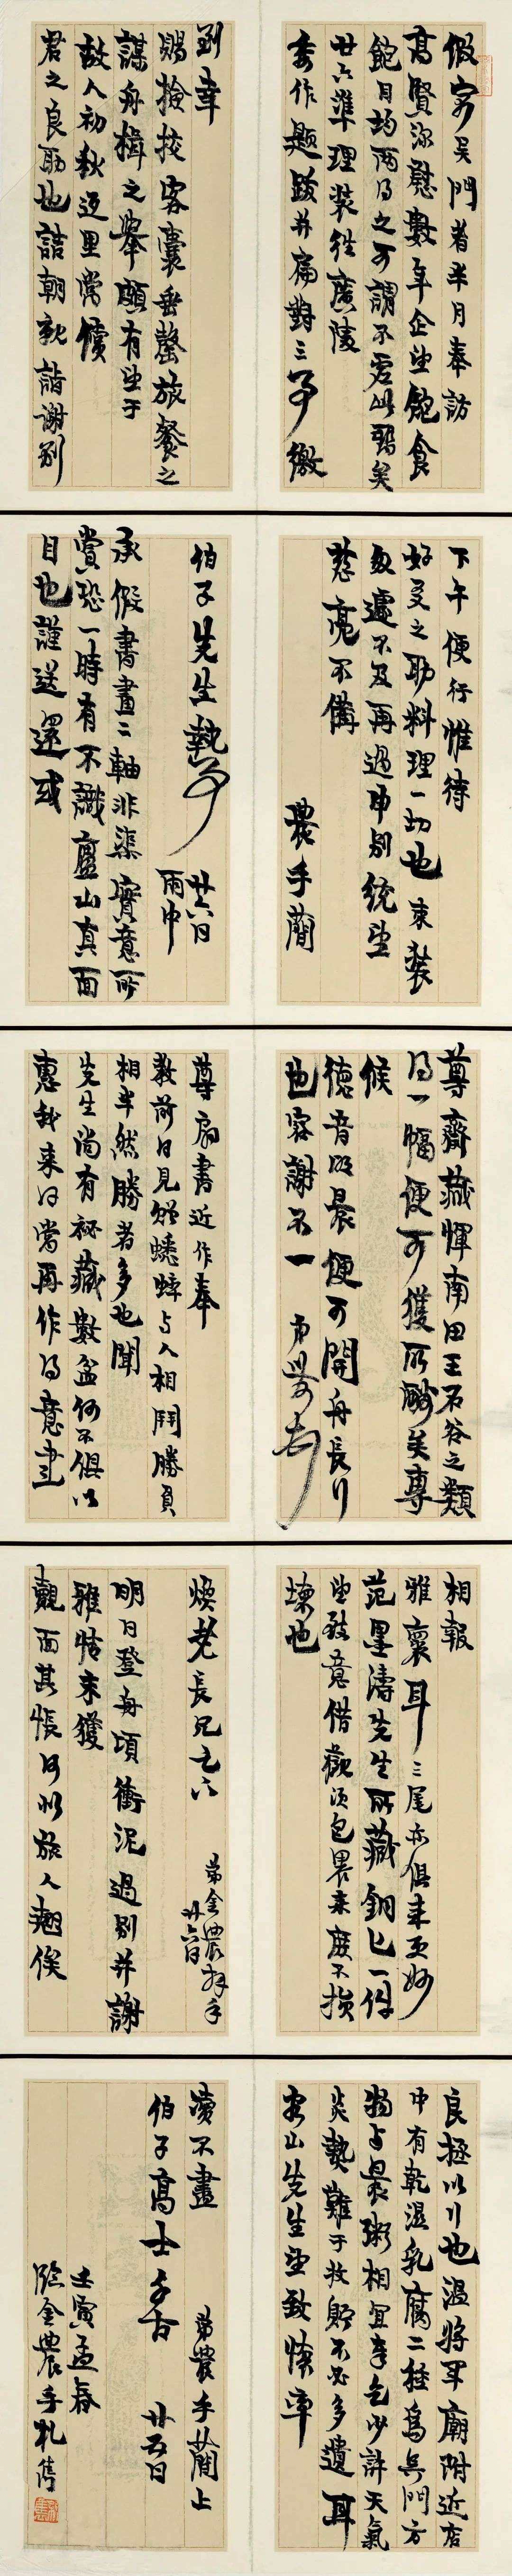 假寓吴門者半月奉訪
高賢深慰數年企望飽食
飽目均兩得之可謂不虛此鄹矣
廿六準理裝往廣陵
委作題跋并扁對三事繳
到幸
賜撿挍客囊垂罄旅餐之
謀舟楫之舉頗有望于
故人初秋返里當償
君之良助也詰朝就詣謝別
下午便行惟待
好友之助料理一切也束裝
匆遽不及再過申別統望
慈亮不備
農手蕳
伯子先生執事 廿六日
雨中
承假書畫二軸非渠實意所
賞恐一時有不識廬山真面
目也謹送還或
尊齋藏惲南田王石谷之類
得一幅便可獲所酬矣專
候
德音明晨便可開舟長行
也容謝不一 弟農頓首
尊扇書近作奉
教前日見贈蟋蟀与人相鬥勝負
相半然勝者多也聞
先生尚有祕藏數盆何不俱以
惠我来日當再作得意畫
相報
雅褱耳三尾亦俱来更妙
范墨濤先生所藏銅匕一件
望致意借觀須包畏来庶不損
壞也
煥老長兄足下
弟金農拜手
廿六日
明日登舟頃衝泥過別并謝
雅惰未獲
覿面其悵何似旅人翹俟
良極以行也温將軍廟附近店
中有乾濕乳腐二種為吳門方
物与晨粥相宜幸乞少許天氣
炎熱難于收貯不必多遺耳
客山先生望致懷率
瀆不盡
弟農手蕳上
伯子高士千古 廿五日
壬寅孟春
臨金農手札